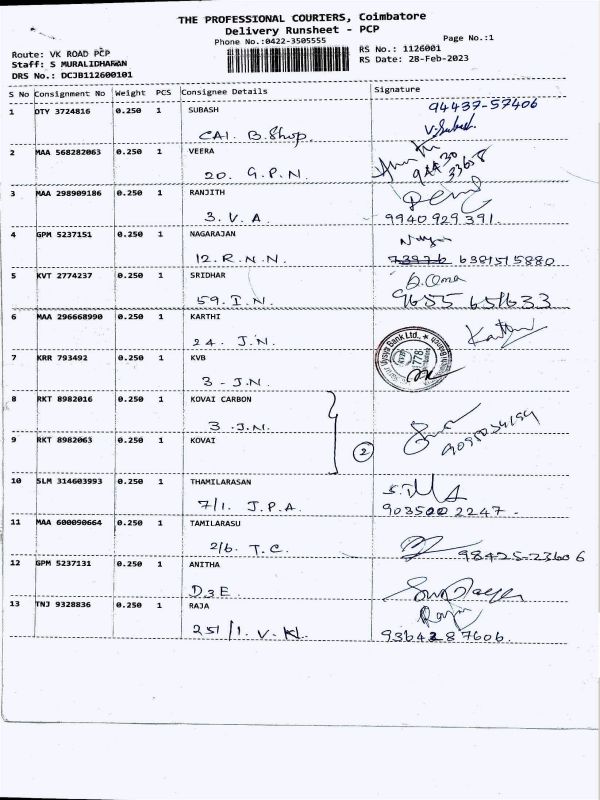 THE PROFESSIONAL COURIERS, Coimbatore
Delivery Runsheet - PCP
Phone No.:0422-3505555
Page No.:1
Route: VK ROAD PCP
RS No.: 1126001
Staff: S MURALIDHARAN
RS Date: 28-Feb-2023
DRS No.: DCJB112600101
S No Consignment No Weight PCS Consignee Details Signature
1 DTY 3724816 0.250 1 SUBASH 94437-57406
CAI. B.Shop.
2 MAA 568282063 0.250 1 VEERA
20. G.P.N. 94430 33658
3 MAA 298909186 0.250 1 RANJITH
3. V. A. 9940929391.
4 GPM 5237151 0.250 1 NAGARAJAN
12. R.N.N. 6381515880
5 KVT 2774237 0.250 1 SRIDHAR
59. I.N. 9655 651633
6 MAA 296668990 0.250 1 KARTHI
24. J.N.
7 KRR 793492 0.250 1 KVB
3 - J.N.
Vysya Bank Ltd.,
8 RKT 8982016 0.250 1 KOVAI CARBON
3 .J.N.
9 RKT 8982063 0.250 1 KOVAI
2
10 SLM 314603993 0.250 1 THAMILARASAN
7/1. J.P.A. 9035002247.
11 MAA 600090664 0.250 1 TAMILARASU
2/6. T.C. 98425-23606
12 GPM 5237131 0.250 1 ANITHA
D3E.
13 TNJ 9328836 0.250 1 RAJA
251/1. V.N. 9364287606.